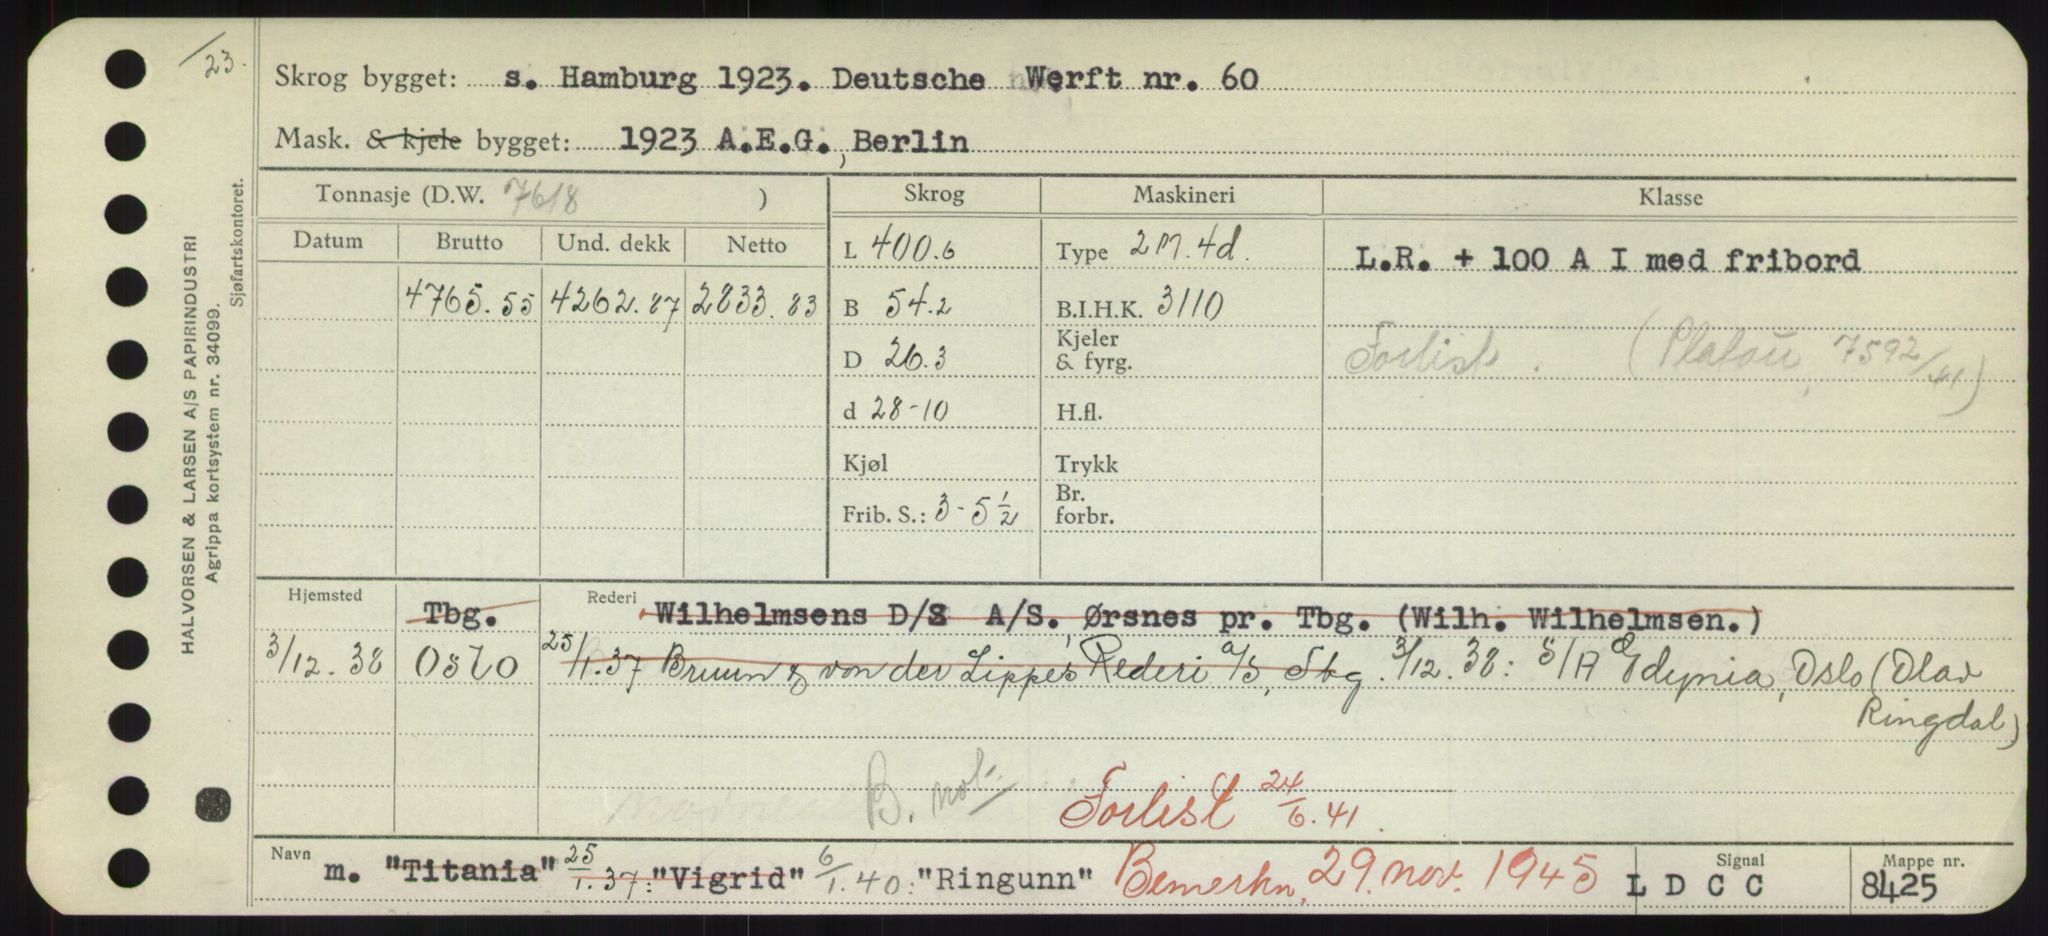 /23.
HALVORSEN & LARSEN A/S PAPIRINDUSTRI
Agrippa kortsystem nr. 34099.
Sjøfartskontoret.
Skrog bygget: s. Hamburg 1923. Deutsche Werft nr. 60
Mask. & kjele bygget: 1923 A.E.G., Berlin
Tonnasje (D.W. 7618 ) Skrog Maskineri Klasse
Datum Brutto Und. dekk Netto L 400.6 Type 2 M. 4d. L.R. + 100 A I med fribord
4765.55 4262.87 2833.83 B 54.2 B.I.H.K. 3110
D 26.3 Kjeler & fyrg. Forlist. (Platou, 7592/41)
d 28-10 H.fl.
Kjøl Trykk
Frib. S.: 3-5 1/2 Br. forbr.
Hjemsted Tbg. Rederi Wilhelmsens D/S A/S, Ørsnes pr. Tbg. (Wilh. Wilhelmsen.)
3/12.38 Oslo 25/1.37 Bruun & von der Lippes Rederi a/s, Tbg. 3/12.38: S/A Gdynia, Oslo (Olav
Ringdal)
B. not.
Forlist 24/6.41.
Navn m. "Titania" 25/1.37: "Vigrid" 6/1.40: "Ringunn" Bemerkn. 29. nov. 1945 Signal L D C C Mappe nr. 8425